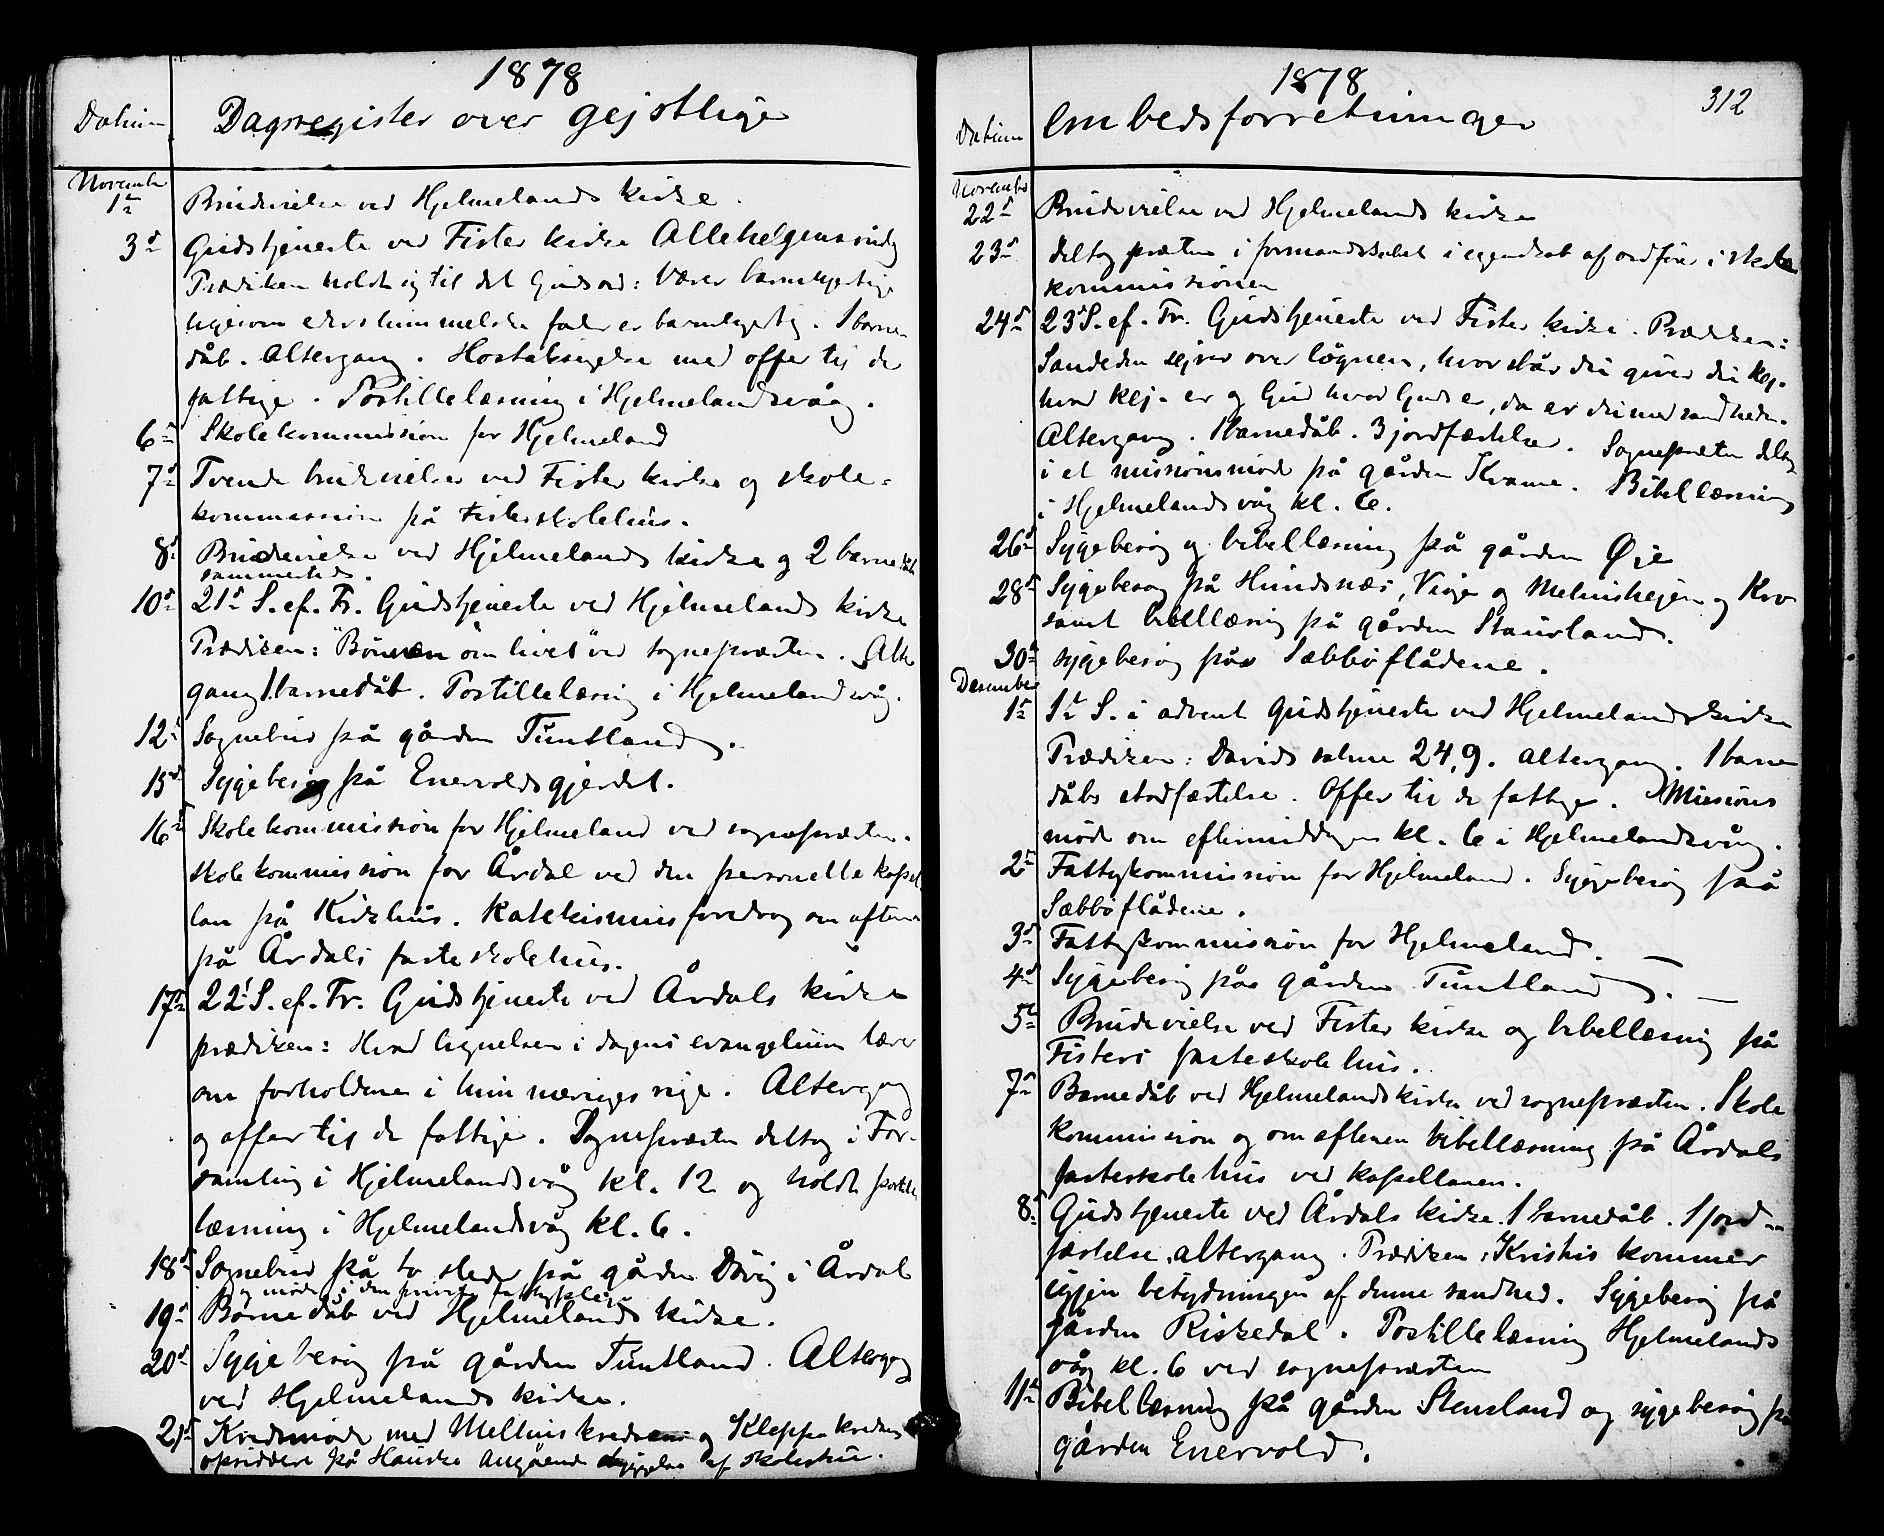 1878
Datum Dagsregister over gejstlige
November
1ste Brudevielse ved Hjelmelands kirke.
3die Gudstjeneste ved Fister kirke Allehelgenssøndag
Prædiken holdt sig til det Guds ord: Værer barmhjertige
ligesom eders himmelske fader er barmhjertig. 1 barne-
dåb. Altergang. Høstaksigelse med offer til de
fattige. Postillelæsning i Hjelmelandsvåg.
6te Skolekommission for Hjelmeland
7de Tvende brudevielser ved Fister kirke og skole-
kommission på Fister skolehus.
8de Brudevielse ved Hjelmelands kirke og 2 barnedåb
sammesteds.
10de 21de S. ef. Tr. Gudstjeneste ved Hjelmelands kirke
Prædiken: "Bønnen om livet" ved sognepræsten. Alter
gang 1 barnedåb. Postillelæsning i Hjelmelandsvåg.
12te Sognebud på gården Tuntland.
15de Sygebesøg på Enervoldsgjerdet.
16de Skolekommission for Hjelmeland ved sognepræsten.
skolekommission for Årdal ved den personelle kapel
lan på Kirkhus. Katekismusforedrag om aftenen
på Årdals faste skolehus.
17de 22de S. ef. Tr. Gudstjeneste ved Årdals kirke
prædiken: Hvad lignelsen i dagens evangelium lærer
om forholdene i himmeriges rige. Altergang
og offer til de fattige. Sognepræsten deltog i For-
samling i Hjelmelandsvåg kl. 12 og holdt postille
læsning i Hjelmelandsvåg kl. 6.
18de Sognebud på to steder på gården Døvig i Årdal
og møde i den private fattigpleje
19de Barnedåb ved Hjelmelands kirke.
20de Sygebesøg på gården Tuntland. Altergang
ved Hjelmelands kirke.
21de Kredsmøde med Meltuns kredsens og Kleppa kredsens
opsiddere på Hauske angående byggelse af skolehus.
1878
312
Datum Embedsforretninger
November
22de Brudevielse ved Hjelmelands kirke
23de deltog præsten i formandskabet i egenskab af ordfører i skole
kommissionen
24de 23de S. ef. Tr. Gudstjeneste ved Fister kirke. Prædiken:
Sandheden sejrer over løgnen, hvor står du giver du kej.
hvad kej. er og Gud hvad Guds er, da er du med sandheden.
Altergang. 1 barnedåb. 3 jordfæstelser. Sognepræsten deltog
i et missionsmøde på gården Kvame. Bibellæsning
i Hjelmelandsvåg kl. 6.
26de Sygebesøg og bibellæsning på gården Øje
28de Sygebesøg på Hundsnæs, Viga og Melhushejen og Kro
samt bibellæsning på gården Staurland.
30te sygebesøg på Sæbbøflådene.
Desember
1ste 1ste S. i advent Gudstjeneste ved Hjelmelands kirke
Prædiken: Davids salme 24,9. Altergang. 1 barne
dåbs stadfæstelse. Offer til de fattige. Missions
møde om eftermiddagen kl. 6 i Hjelmelandsvåg.
2den Fattigkommission for Hjelmeland. Sygebesøg på
Sæbbøflådene.
3die Fattigkommission for Hjelmeland. —
4de Sygebesøg på gården Tuntland. —
5te Brudevielse ved Fister kirke og bibellæsning på
Fisters faste skolehus.
7de Barnedåb ved Hjelmelands kirke ved sognepræsten. Skole
kommission og om aftenen bibellæsning på Årdals
fasteskolehus ved kapellanen.
8de Gudstjeneste ved Årdals kirke. 1 barnedåb. 1 jord-
fæstelse. Altergang. Prædiken: Kristus kommer
igjen betydningen af denne sandhed. Sygebesøg på
gården Riskedal. Postillelæsning Hjelmelands
våg kl. 6 ved sognepræsten
11te Bibellæsning på gården Stensland og sygebesøg på
gården Enervold.